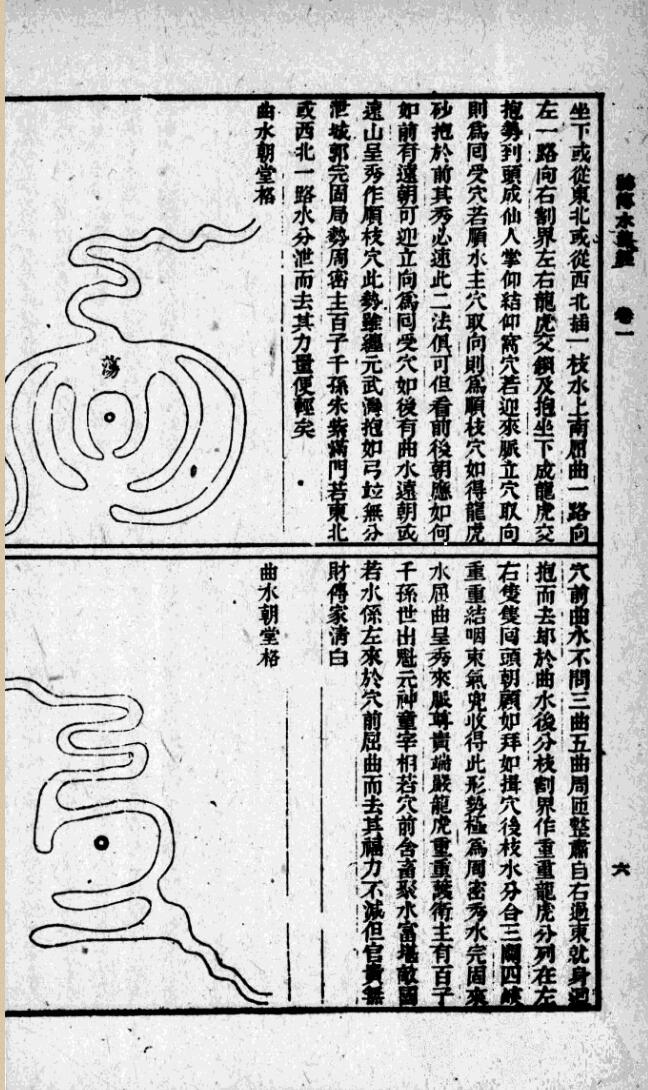 秘傳水龍經　卷一
六
坐下或從東北或從西北插一枝水上南屈曲一路向
左一路向右割界左右龍虎交鎖及抱坐下成龍虎交
抱勢到頭成仙人掌仰結仰窩穴若迎來脈立穴取向
則爲囘受穴若順水主穴取向則爲順枝穴如得龍虎
砂抱於前其秀必速此二法俱可但看前後朝應如何
如前有遠朝可迎立向爲囘受穴如後有曲水遠朝或
遠山呈秀作順枝穴此勢雖纏元武灣抱如弓並無分
泄城郭完固局勢周密主百子千孫朱紫滿門若東北
或西北一路水分泄而去其力量便輕矣
曲水朝堂格
蕩
穴前曲水不問三曲五曲周匝整肅自右過東就身迴
抱而去却於曲水後分枝割界作重重龍虎分列在左
右隻隻囘頭朝顧如拜如揖穴後枝水分合三關四峽
重重結咽束氣兜收得此形勢極爲周密秀水完固來
水屈曲呈秀來脈尊貴端嚴龍虎重重護衛主有百子
千孫世出魁元神童宰相若穴前含畜聚水富堪敵國
若水係左來於穴前屈曲而去其福力不減但官貴無
財傳家清白
曲水朝堂格